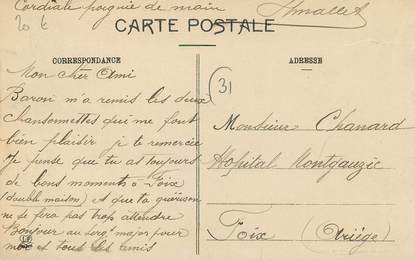 Cordiale poignée de main
Hmallet
20 €
CARTE POSTALE
CORRESPONDANCE
ADRESSE
31
Mon cher Ami
Baron m'a remis les deux
chansonnettes qui me font
bien plaisir je te remercie
Je pense que tu as toujours
de bons moments à Foix
(double maison) et que ta guérison
ne se fera pas trop attendre
Bonjour au serg' major pour
moi et tous les amis
Monsieur Chanard
Hopital Montgauzic
Foix (Ariège)